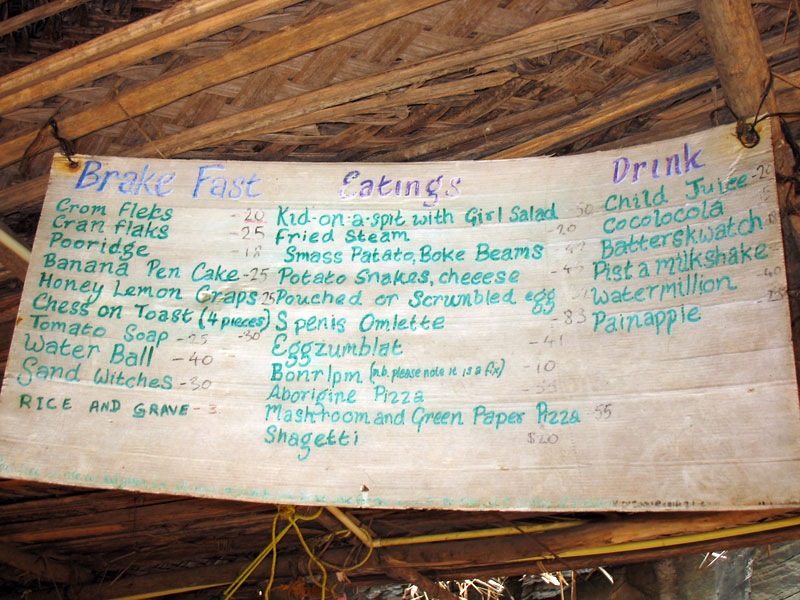 Brake Fast
Crom Fleks -20
Cran flaks -25
Pooridge -18
Banana Pen Cake -25
Honey Lemon Graps 25
Chess on Toast (4 pieces) -30
Tomato Soap -25
Water Ball -40
Sand Witches -30
RICE AND GRAVE - 3
Eatings
Kid-on-a-spit with Girl Salad 50
Fried Steam -20
Smass Patato, Boke Beams
Potato Snakes, cheeese
Pouched or Scrumbled egg
Spenis Omlette -83
Eggzumblat -41
Bonrlpm (n.b. please note it is a fix) -10
Aborigine Pizza -55
Mashtroom and Green Paper Pizza 55
Shagetti $20
Drink
Child Juice -20
Cocolocola
Batterskwatch
Pista milkshake
Watermillion -40
Painapple